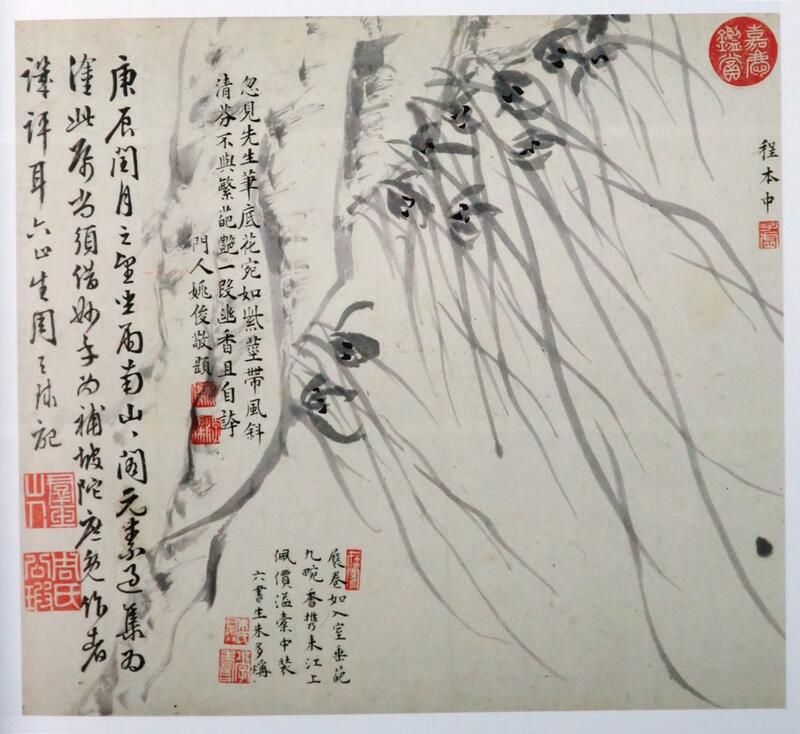 嘉慶
鑑賞
程本中
忽見先生筆底花宛如紫莖帶風斜
清芬不與繁葩艷一段幽香且自誇
門人姚俊敬題
展卷如入室垂葩
九畹香携來江上
佩價溢橐中裝
六書生朱多
庚辰閏月之望坐雨南山閣元素過集為
塗此尚須借妙手為補坡陀庶免作者
評耳六止生周天球記
群玉
山人
周氏
公瑕